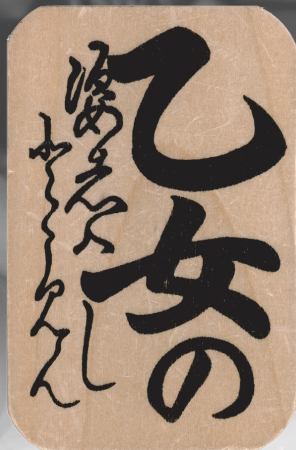 乙女の
姿志はし
とゝめん